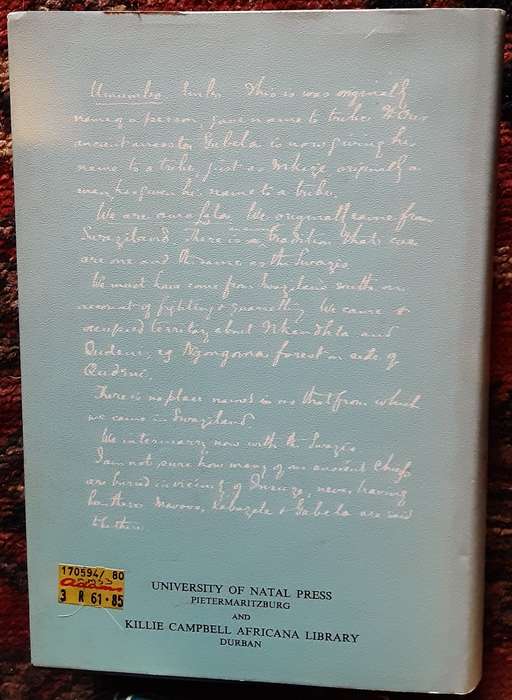 Umumbo tribe. This was originally
name of a person, gave name to tribe. Our
ancient ancestor Gubela is now giving his
name to a tribe, just as Mkize originally a
man has given his name to a tribe.
We are We originally came from
Swaziland. There is a tradition that we
are one and the same as the Swazis.
We must have come from Swaziland south on
account of fighting & quarrelling. We came &
occupied territory about Nkandhla and
Qudeni, eg forest on side of
Qudeni.
There is no place named in as that from which
we came in Swaziland
We intermarry now with the Swazis
I am not sure how many of our ancient chiefs
are buried in vicinity of never having
been there. & Gubela are said
to be there.
170594/ 80
adams
3 R 61·85
UNIVERSITY OF NATAL PRESS
PIETERMARITZBURG
AND
KILLIE CAMPBELL AFRICANA LIBRARY
DURBAN